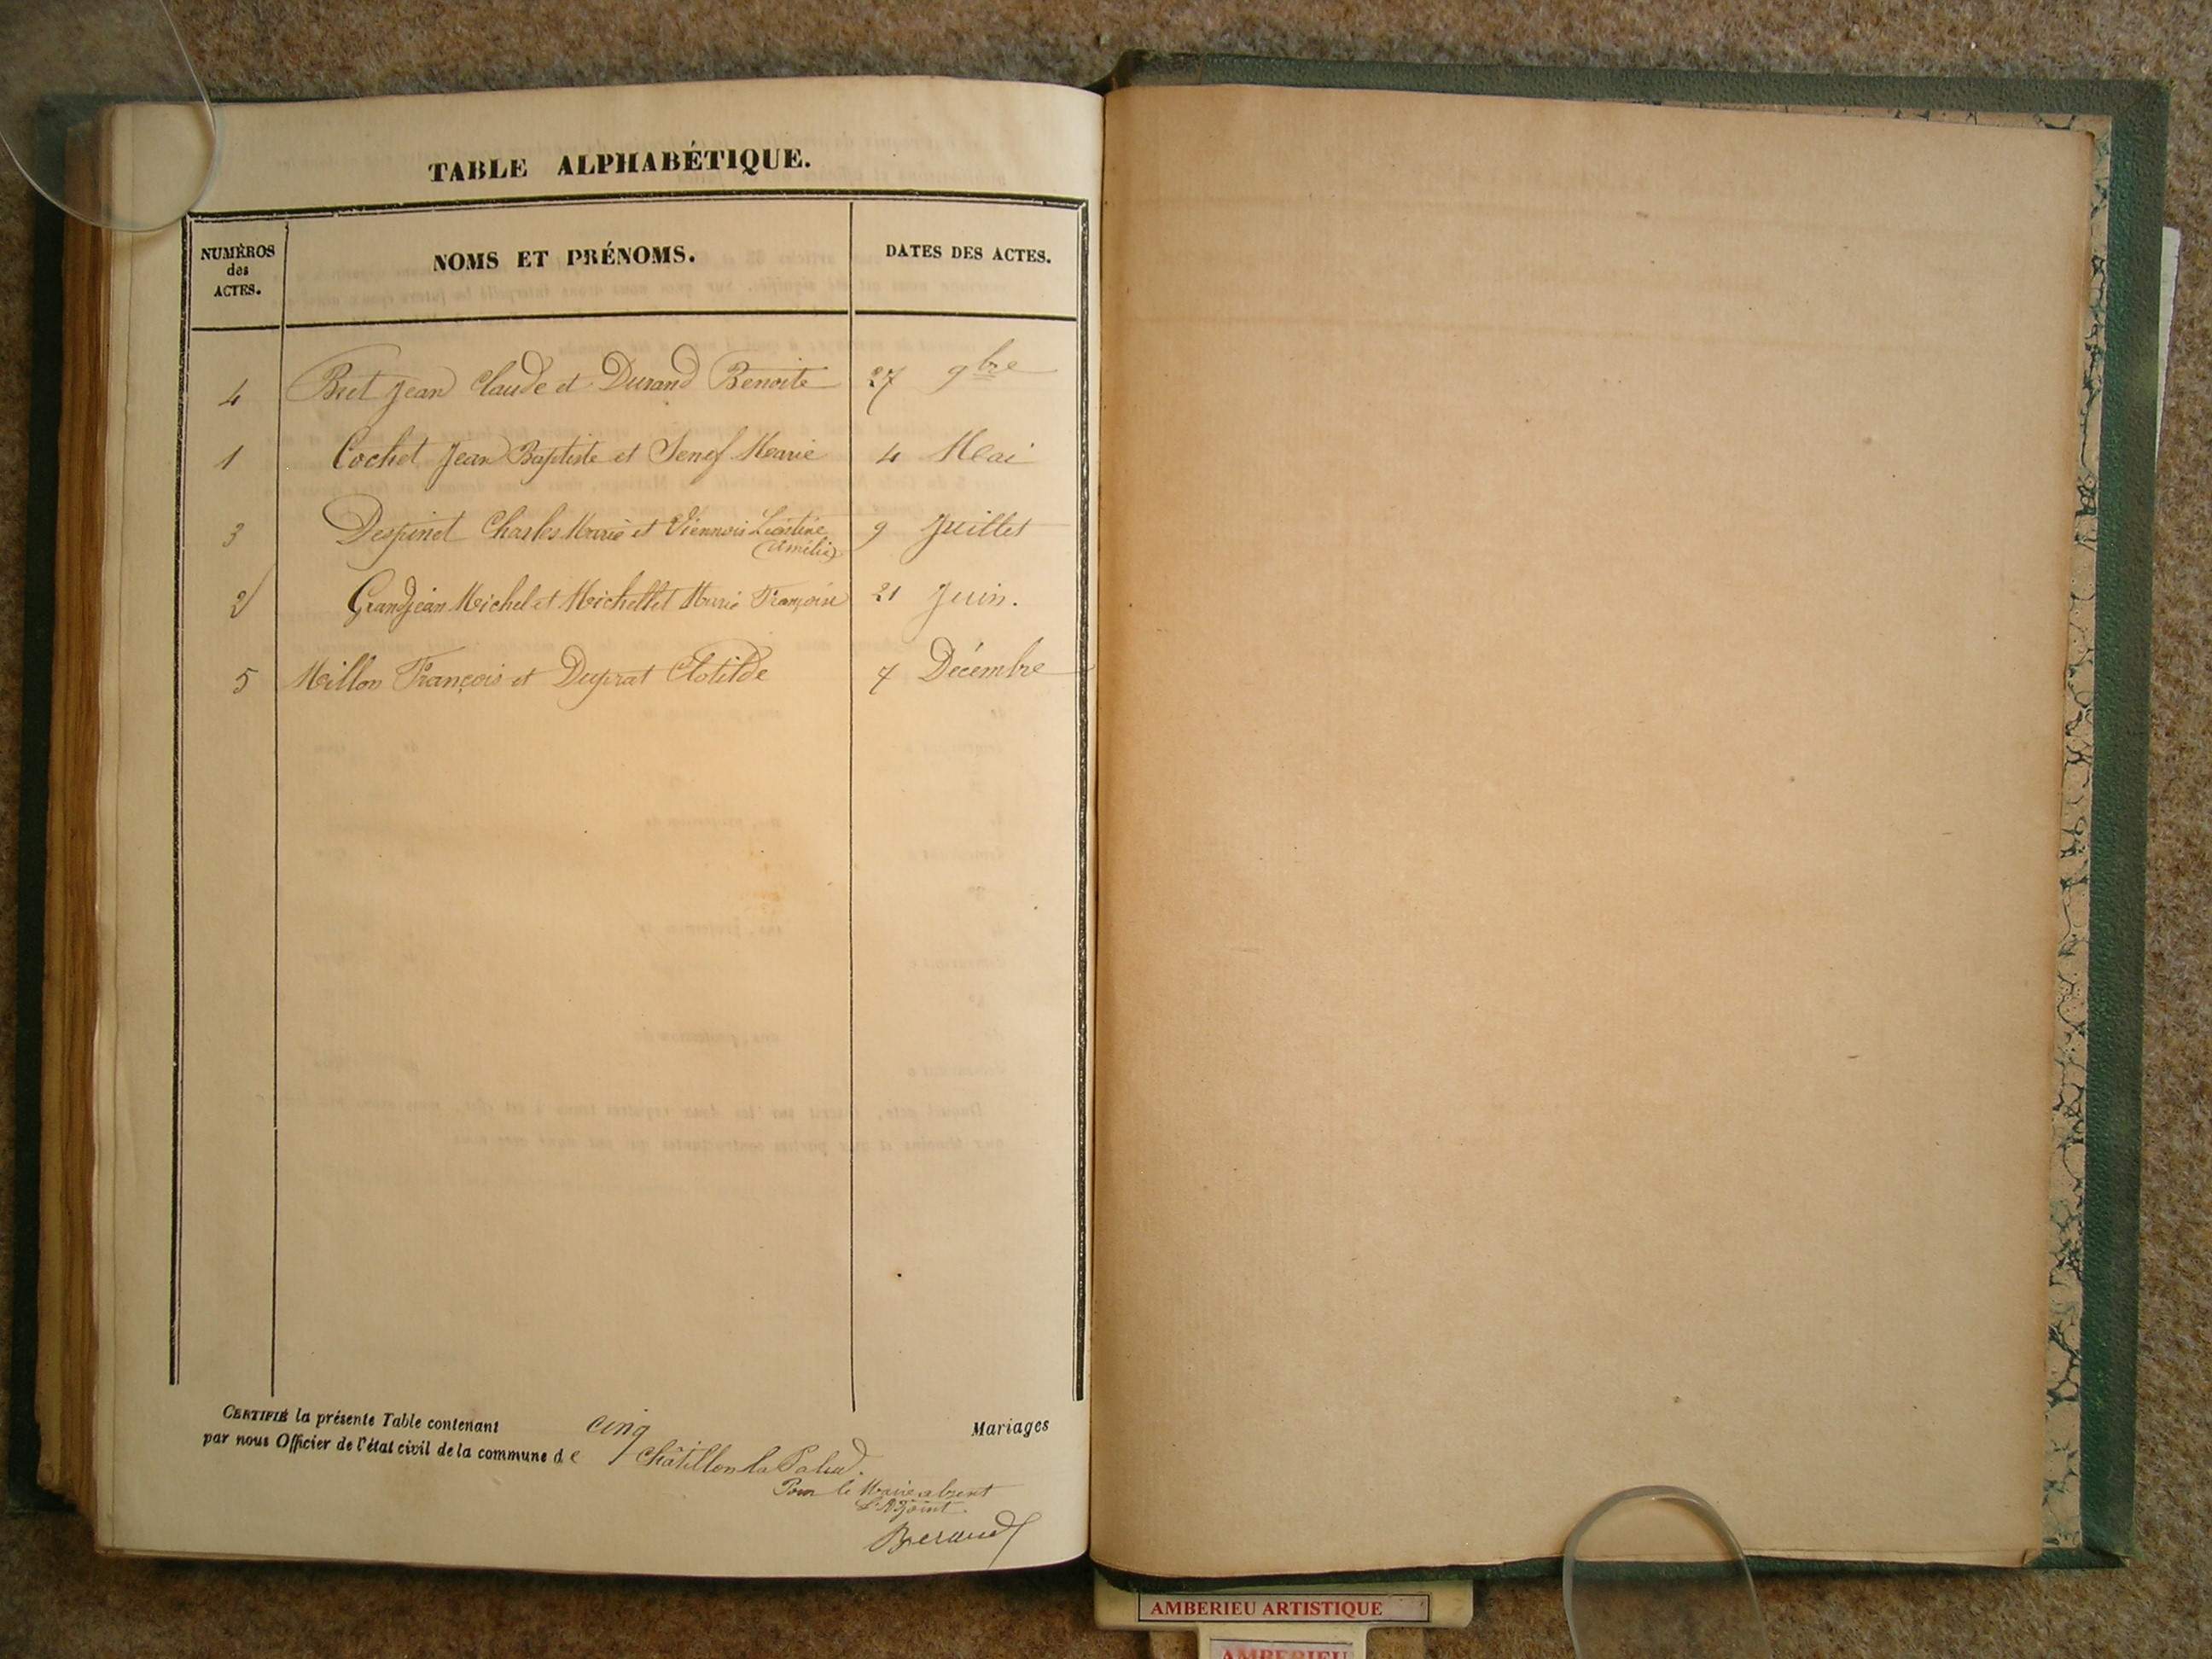 TABLE ALPHABÉTIQUE.
NUMÉROS
des
ACTES.
NOMS ET PRÉNOMS.
DATES DES ACTES.
4 Bret Jean Claude et Durand Benoite 27 9bre
1 Cochet Jean Baptiste et Marie 4 Mai
3 Despinet Charles Marie et Viennois Léontine 9 Juillet
(Amélie)
2 Grandjean Michel et Michellet Marie Françoise 21 Juin.
5 Millon François et Duprat Clotilde 7 Décembre
CERTIFIÉ la présente Table contenant cinq Mariages
par nous Officier de l'état civil de la commune de Châtillon la Palud.
Pour le Maire absent
L'Adjoint.
Beraud
AMBERIEU ARTISTIQUE
AMBERIEU